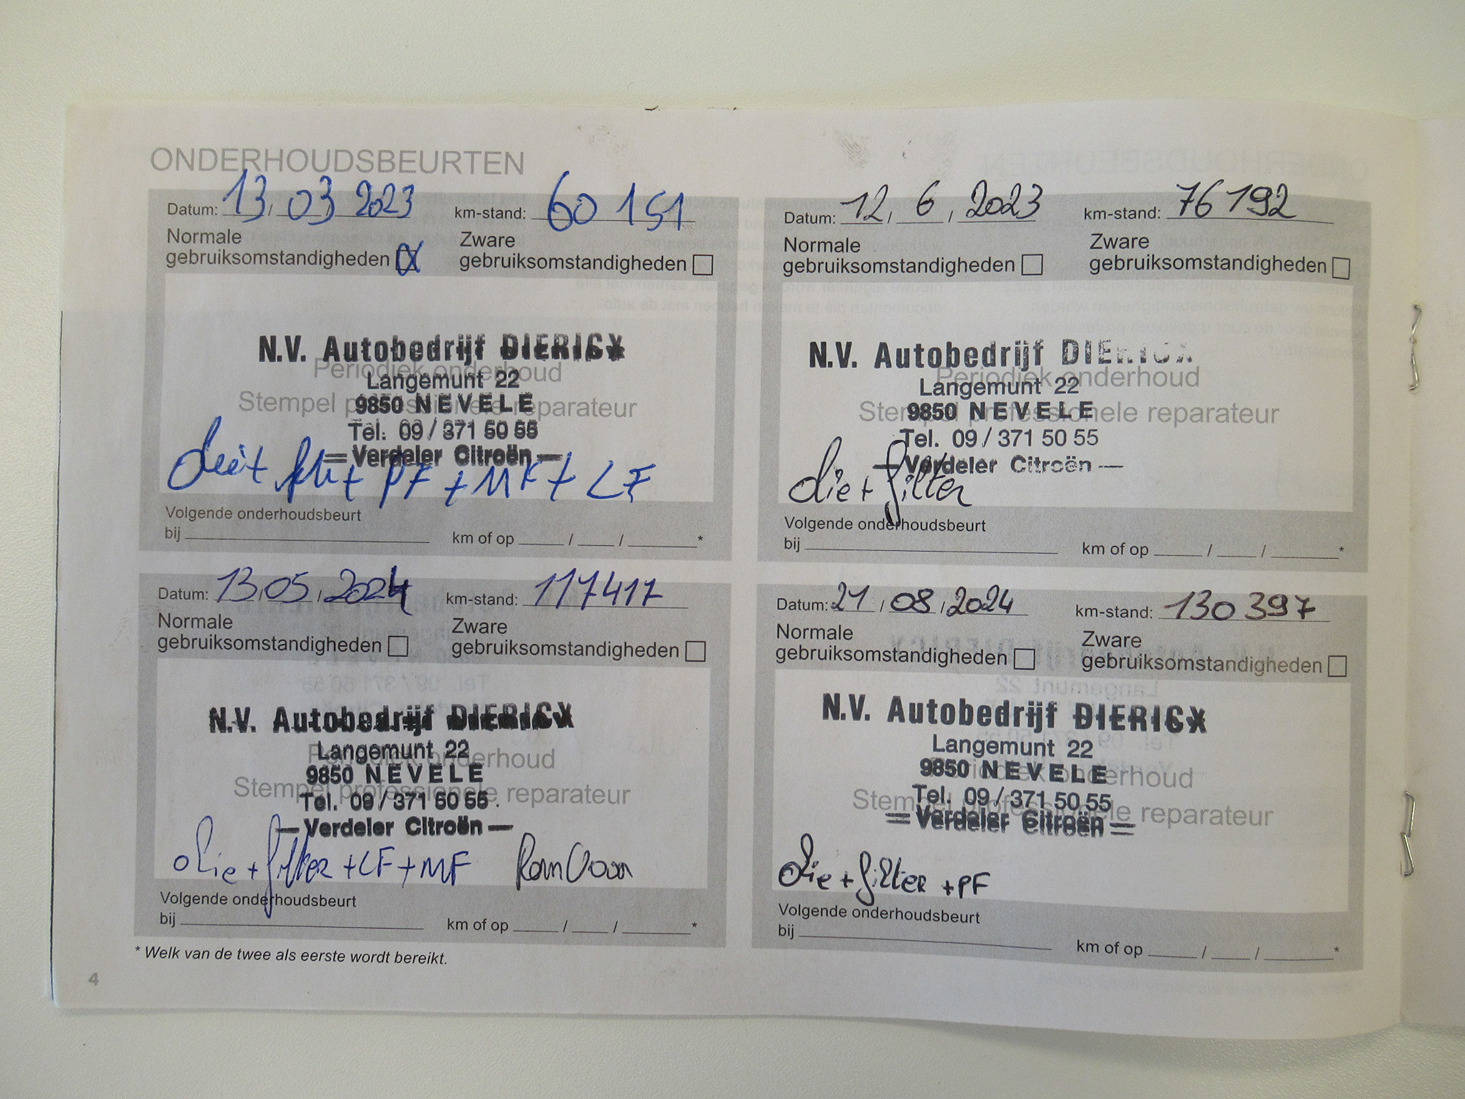 ONDERHOUDSBEURTEN
Datum: 13, 03 2023 km-stand: 60 151
Normale Zware
gebruiksomstandigheden gebruiksomstandigheden
Periodiek onderhoud
Stempel professionele reparateur
N.V. Autobedrijf DIERICX
Langemunt 22
9850 NEVELE
Tel. 09/371 50 55
Verdeler Citroën
+ PF + MF + LF
Volgende onderhoudsbeurt
bij km of op / / *
Datum: 12, 6, 2023 km-stand: 76 192
Normale Zware
gebruiksomstandigheden gebruiksomstandigheden
Periodiek onderhoud
Stempel professionele reparateur
N.V. Autobedrijf DIERICX
Langemunt 22
9850 NEVELE
Tel. 09/371 50 55
Verdeler Citroën
Olie + filter
Volgende onderhoudsbeurt
bij km of op / / *
Datum: 13,05,2024 km-stand: 117417
Normale Zware
gebruiksomstandigheden gebruiksomstandigheden
Periodiek onderhoud
Stempel professionele reparateur
N.V. Autobedrijf DIERICX
Langemunt 22
9850 NEVELE
Tel. 09/371 50 55
Verdeler Citroën
Olie + filter + LF + MF
Volgende onderhoudsbeurt
bij km of op / / *
Datum: 21/08/2024 km-stand: 130 397
Normale Zware
gebruiksomstandigheden gebruiksomstandigheden
Periodiek onderhoud
Stempel professionele reparateur
N.V. Autobedrijf DIERICX
Langemunt 22
9850 NEVELE
Tel. 09/371 50 55
Verdeler Citroën
Olie + filter + PF
Volgende onderhoudsbeurt
bij km of op / / *
* Welk van de twee als eerste wordt bereikt.
4